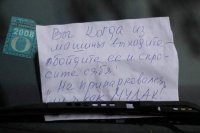 2008
Вы когда из
машины выходите -
обойдите ее и спро-
сите себя:
"Не припарковалс
я как МУДАК"